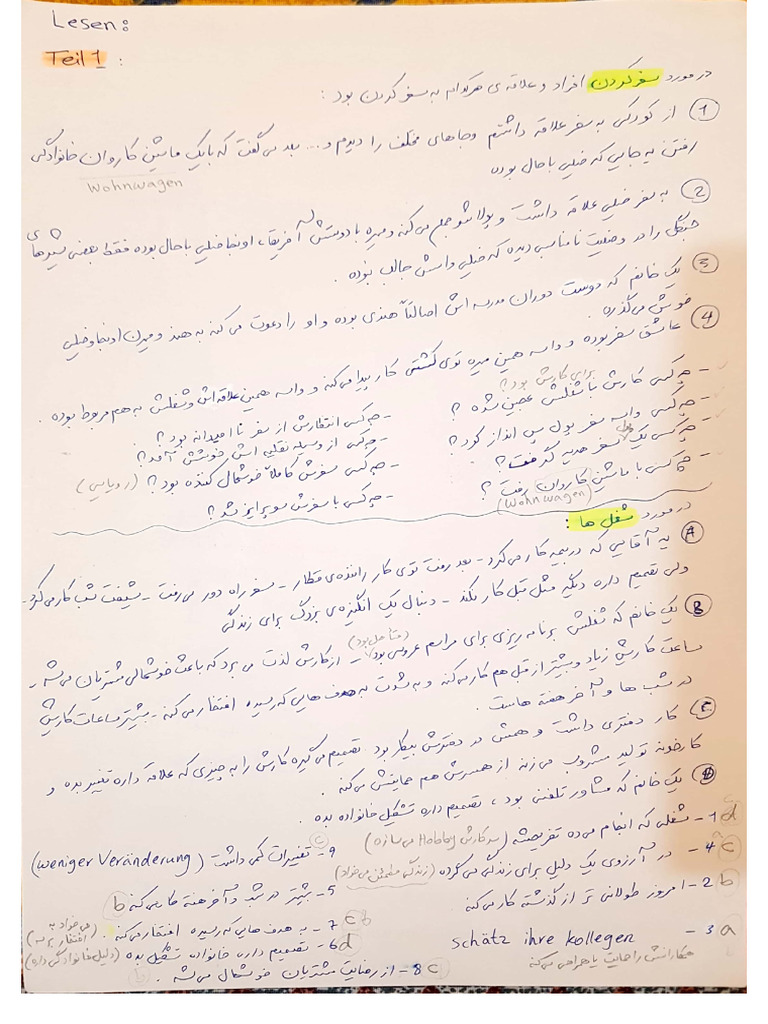 Lesen:
Teil 1 :
در مورد سفر کردن افراد و علاقه ی هرکدام به سفر کردن بود :
① از کودکی به سفر علاقه داشتم و جاهای مختلف را دیدم و ... بعد می گفت که با یک ماشین کاروان خانوادگی
رفتن یه جایی که خیلی با حال بوده
Wohnwagen
② به سفر خیلی علاقه داشت و پولاشو جمع می کنه و میره با دوستش آفریقا، اونجا خیلی با حال بوده فقط بعضی شیرها ی
جنگل را در وضعیت نامناسبی دیده که خیلی واسش جالب نبوده .
③ یک خانم که دوست دوران مدرسه اش اصالتاً هندی بوده و او را دعوت می کنه به هند و میرن اونجا و خیلی
خوش می گذره .
④ عاشق سفر بوده و واسه همین میره توی کشتی کار پیدا می کنه و واسه همین علاقه اش و شغلش به هم مربوط بوده .
برای کارش بود؟
- چه کسی کارش با شغلش عجین شده ؟
- چه کسی واسه سفر پول پس انداز کرد ؟
- چه کسی یک سفر هدیه گرفت ؟
- چه کسی با ماشین کاروان رفت ؟
(Wohnwagen)
- چه کسی انتظارش از سفر نا امیدانه بود ؟
- چه کسی از وسیله نقلی اش خوشش آمد ؟
- چه کسی سفرش کاملاً خوشحال کننده بود ؟ (رویایی)
- چه کسی با سفرش سوپرایز شد ؟
در مورد شغل ها :
Ⓐ یه آقایی که در بیمه کار می کرد - بعد رفت توی کار راننده ی قطار - سفر راه دور می رفت - شیفت شب کار می کرد -
ولی تصمیم داره دیگه مثل قبل کار نکند - دنبال یک انگیزه ی بزرگ برای زندگی
Ⓑ یک خانم که شغلش برنامه ریزی برای مراسم عروسی بود (متاهل بود) - از کارش لذت می برد که باعث خوشحالی مشتریان می شه -
ساعت کارش زیاد و بیشتر از قبل هم کار می کنه و به شدت به هدف هایی که رسیده افتخار می کنه - بیشتر ساعات کارش
در شب ها و آخر هفته هاست .
Ⓒ کار دفتری داشت و همش در دفترش بیکار بود . تصمیم می گیره کارش را به چیزی که علاقه داره تغییر بده و
کارخونه تولید مشروب می زنه از همسرش هم حمایتش می کنه .
Ⓓ یک خانم که مشاور تلفنی بود ، تصمیم داره تشکیل خانواده بده .
d 1 - شغلی که انجام می ده تفریحشه (به کارش Hobby می سازه)
c 4 - در آرزوی یک دلیل برای زندگی می گرده (زندگی مطمئن می خواد)
b 2 - امروز طولانی تر از گذشته کار می کنه
a 3 - schätz ihre kollegen
همکارانش را حمایت یا همراهی می کنه
9 - تغییرات کمی داشت (weniger Veränderung)
5 - بیشتر در شب و آخر هفته کار می کنه b
7 - به هدف هایی که رسیده افتخار می کنه . (می خواد به افتخار برسه)
6 - تصمیم داره خانواده تشکیل بده d (دلیل خانوادگی داره)
8 - از رضایت مشتریان خوشحال می شه . c